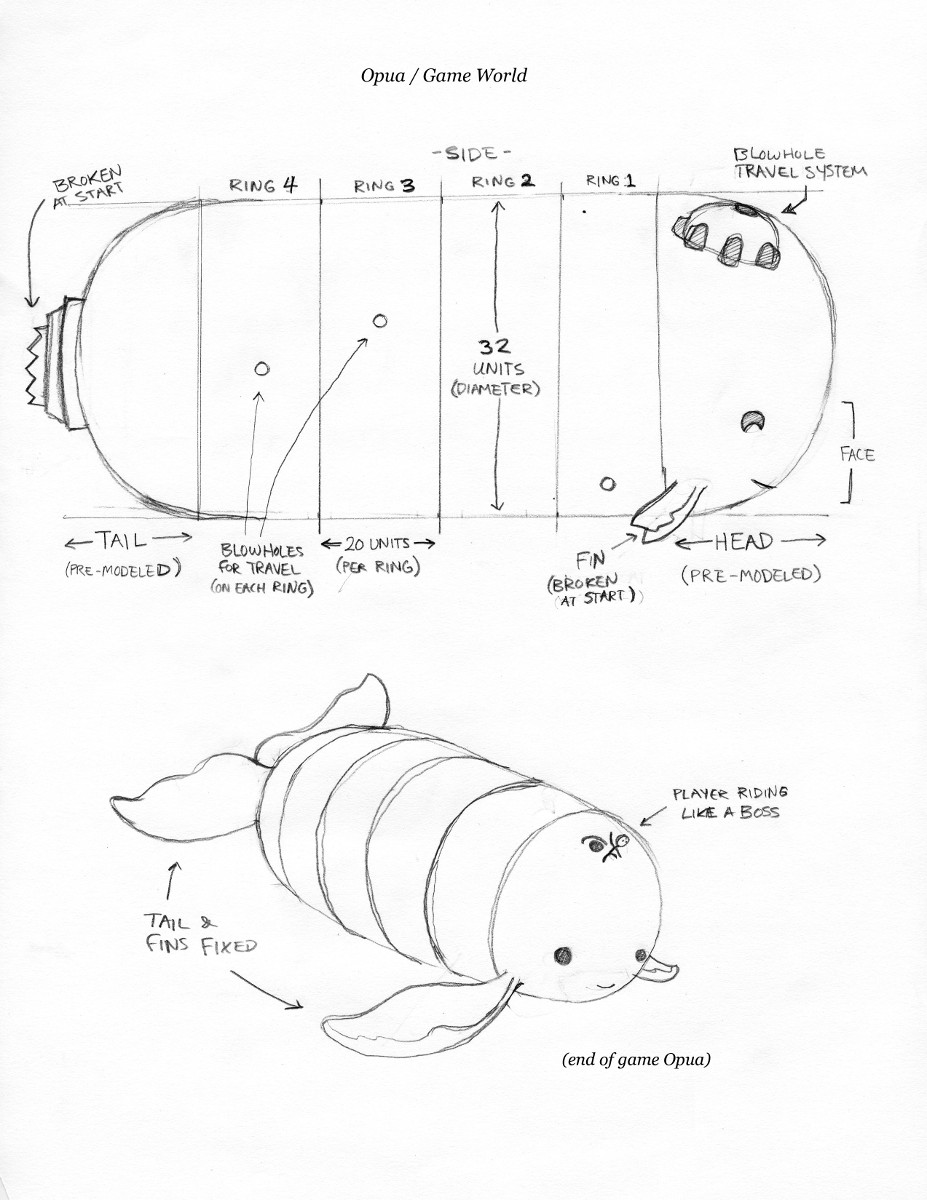 Opua / Game World
-SIDE-
BLOWHOLE
TRAVEL SYSTEM
BROKEN
AT START
RING 4
RING 3
RING 2
RING 1
32
UNITS
(DIAMETER)
FACE
TAIL
(PRE-MODELED)
BLOWHOLES
FOR TRAVEL
(ON EACH RING)
20 UNITS
(PER RING)
FIN
(BROKEN
AT START)
HEAD
(PRE-MODELED)
PLAYER RIDING
LIKE A BOSS
TAIL &
FINS FIXED
(end of game Opua)